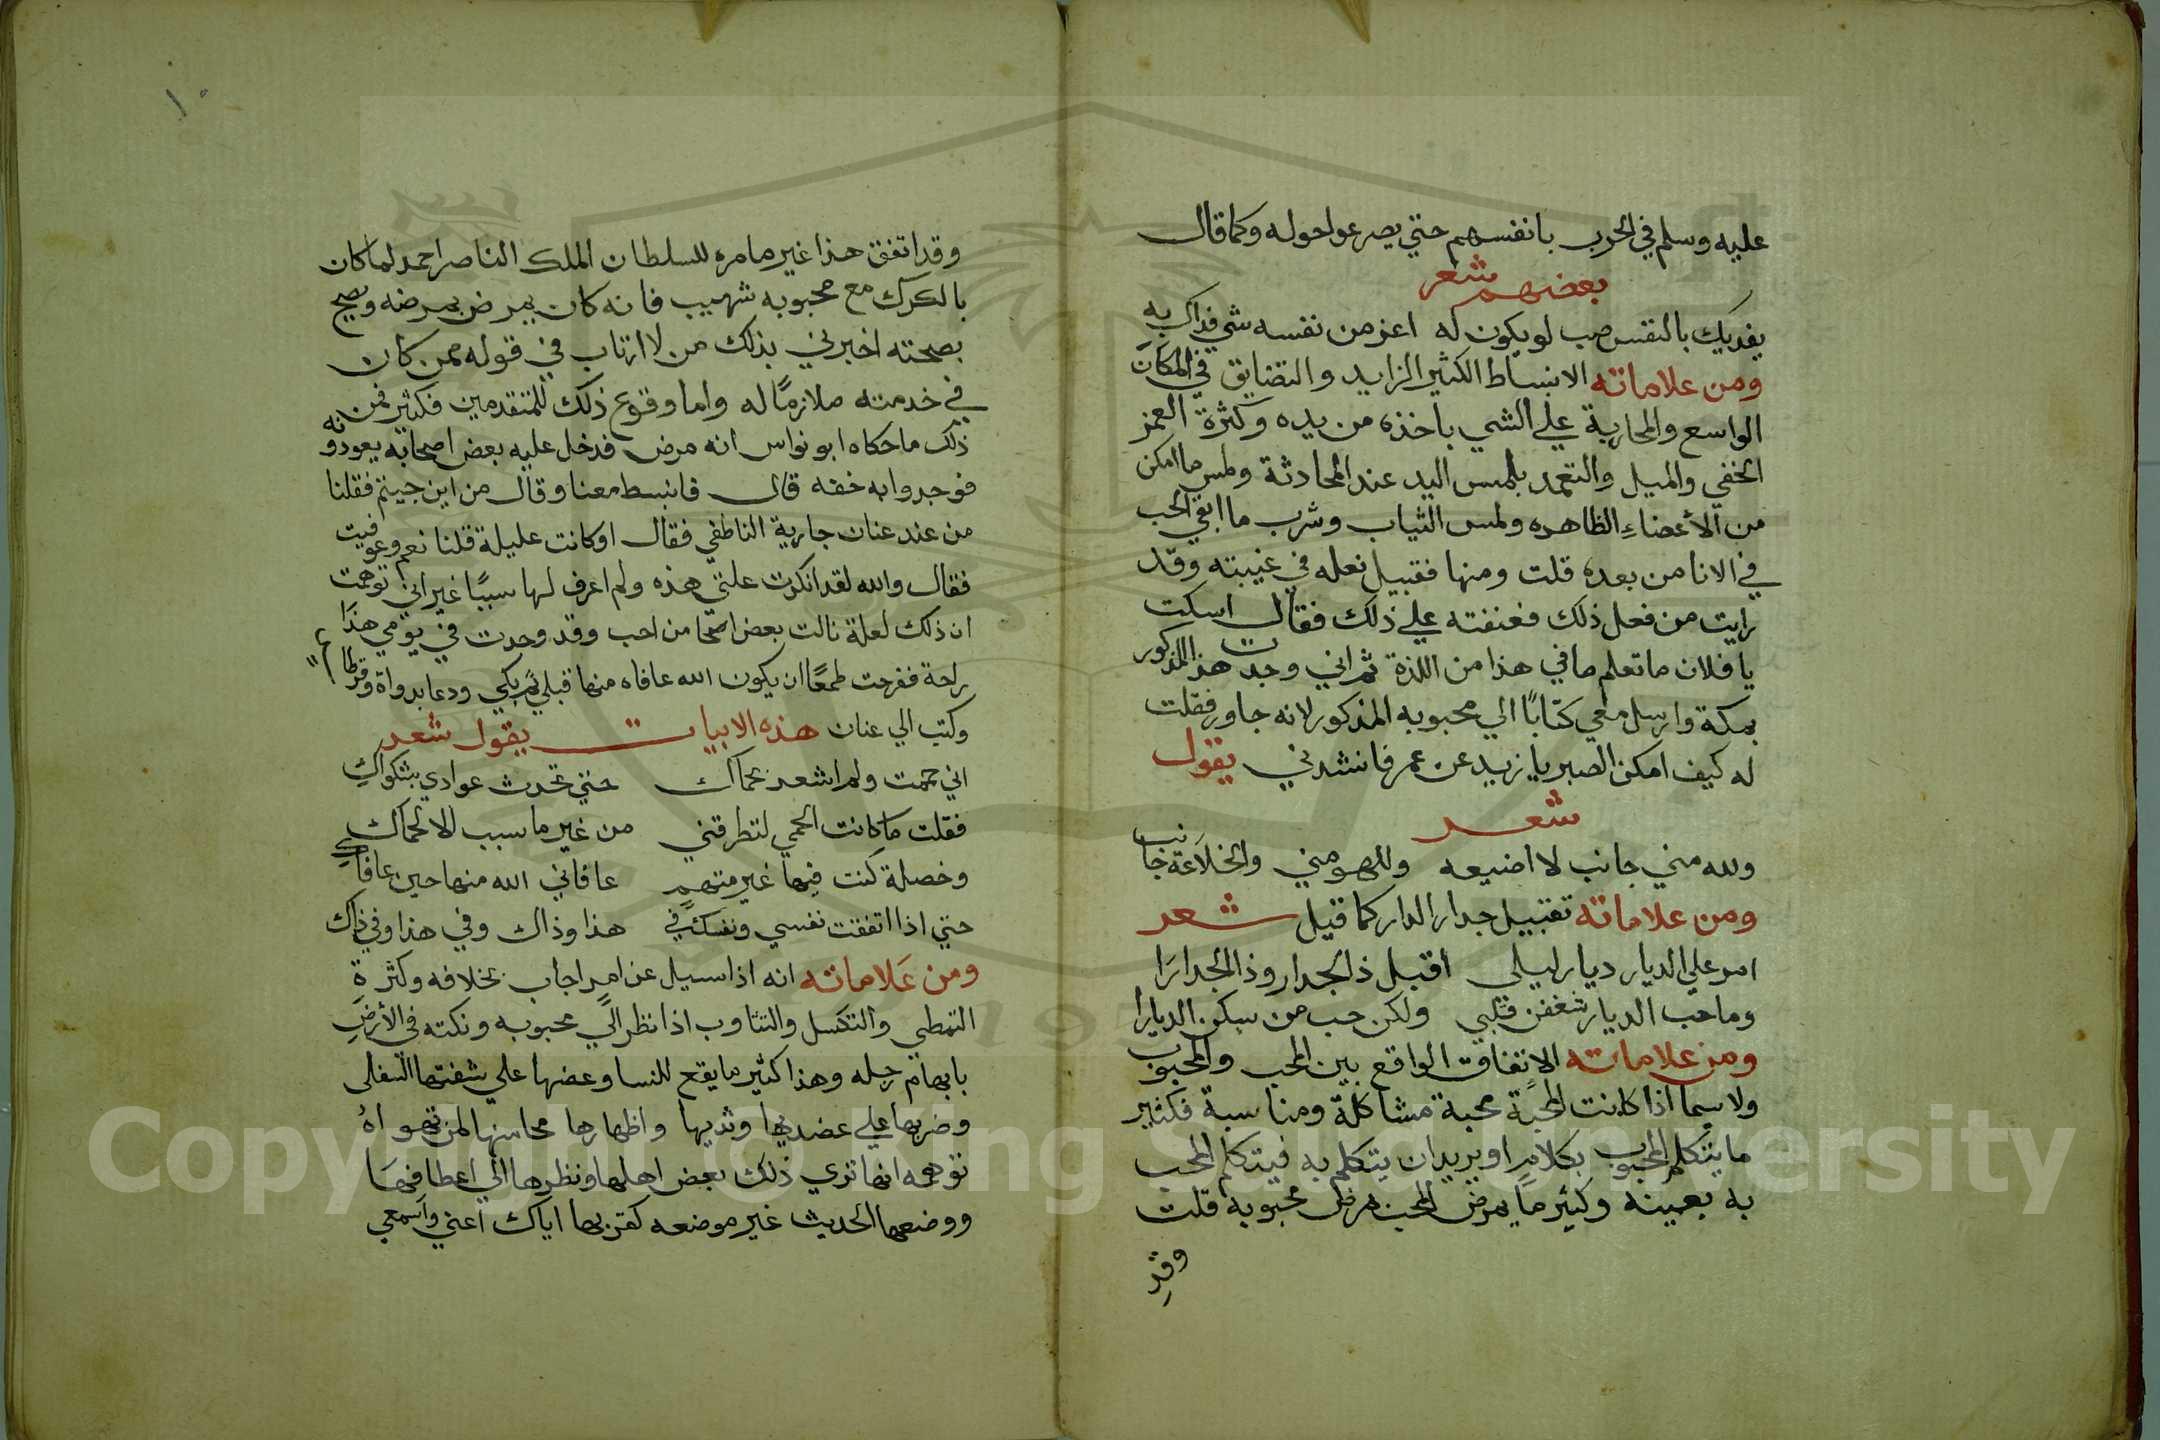 عليه وسلم في الحرب بانفسهم حتي يصرعوا حوله وكما قال
بعضهم شعر
يفديك بالنفس صب لو يكون له اعز من نفسه شي فداك به
ومن علاماته الانبساط الكثير الزايد والتضايق في المكان
الواسع والمحاربة علي الشي ياخذه من يده وكثرة الغمز
الخفي والميل والتعمد بلمس اليد عند المحادثة ولمس ما امكن
من الأعضاءِ الظاهره ولمس الثياب وشرب ما ابقي المحب
في الانا من بعده قلت ومنها فقبيل نعله في غيبته وقد
رايت من فعل ذلك فعنفته علي ذلك فقال اسكت
يا فلان ما تعلم ما في هذا من اللذة ثم اني وجدت هذا المذكور
بمكة وارسل معي كتابًا الي محبوبه المذكور لانه جاور فقلت
له كيف امكن الصبر يا زيد عن عمر فانشدني يقول
شعر
ولله مني جانب لا اضيعه وللهو مني والخلاعة جانب
ومن علاماته تقبيل جدار الدار كما قيل شعر
امر علي الديار ديار ليلي اقبل ذا الجدار وذا الجدارا
وما حب الديار شغفن قلبي ولكن حب من سكن الديارا
ومن علاماته الاتفاق الواقع بين المحب والمحبوب
ولا سيما اذا كانت المحبة محبة مشاكلة ومناسبة فكثير
ما يتكلم المحبوب بكلام او يريد ان يتكلم به فيتكلم المحب
به بعينه وكثير ما يمرض المحب لمرض محبوبه قلت
وقد
١٠
وقد اتفق هذا غير ما مره للسلطان الملك الناصر احمد لما كان
بالكرك مع محبوبه شهيب فانه كان يمرض بمرضه ويصح
بصحته اخبرني بذلك من لا ارتاب في قوله ممن كان
في خدمته ملازمًا له واما وقوع ذلك للمتقدمين فكثير فمن
ذلك ما حكاه ابو نواس انه مرض فدخل عليه بعض اصحابه يعودونه
فوجدوا به خفه قال فانبسط معنا وقال من اين جيتم فقلنا
من عند عنان جارية الناطفي فقال او كانت عليلة قلنا نعم وعوفيت
فقال والله لقد انكرت علتي هذه ولم اعرف لها سببًا غير اني توهمت
ان ذلك لعلة نالت بعض من احب وقد وجدت في يومي هذا
راحة ففرحت طمعًا ان يكون الله عافاه منها قبلي ثم بكي ودعا بدواة وقرطاس
وكتب الي عنان هذه الابيات يقول شعر
اني حممت ولم اشعر بحماك حتي تحدث عوادي بشكواكِ
فقلت ما كانت الحمي لتطرقني من غير ما سبب الا لحماك
وخصلة كنت فيها غير متهم عافاني الله منها حين عافاكِ
حتي اذا اتفقت نفسي ونفسك في هذا وذاك وفي هذا وفي ذاك
ومن علاماته انه اذا سيل عن امر اجاب بخلافه وكثرة
التمطي والتكسل والتثاوب اذا نظر الي محبوبه ونكته في الأرضِ
بابهام رجله وهذا كثير ما يقع للنسا وعضها علي شفتها السفلى
وضربها علي عضديها وثديها واظهارها محاسنها لمن تهواهُ
توهمه انها تري ذلك بعض اهلها ونظرها الي اعطافها
ووضعها الحديث غير موضعه كقربها اياك اعني واسمعي
Copyright © King Saud University